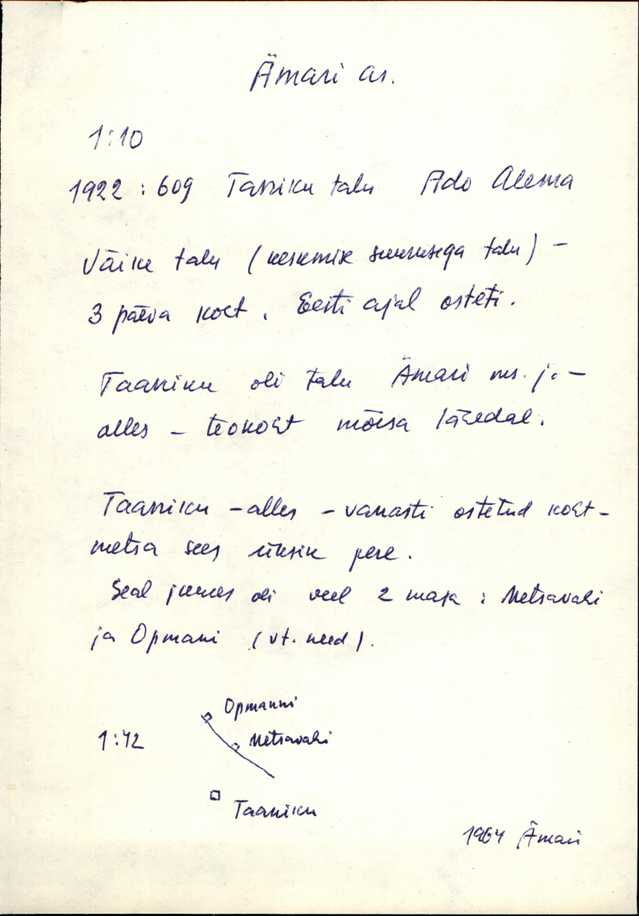 Ämari as.
1:10
1922 : 609 Taaniku talu Ado Alema
Väike talu (keskmise suurusega talu) –
3 päeva koht. Eesti ajal osteti.
Taaniku oli talu Ämari ms. j. –
alles – teokoht mõisa lähedal.
Taaniku – alles – vanasti ostetud koht –
metsa sees üksik pere.
Seal juures oli veel 2 maja : Metsavahi
ja Opmani (vt. need).
Opmanni
1:42 Metsavahi
Taaniku
1964 Ämari